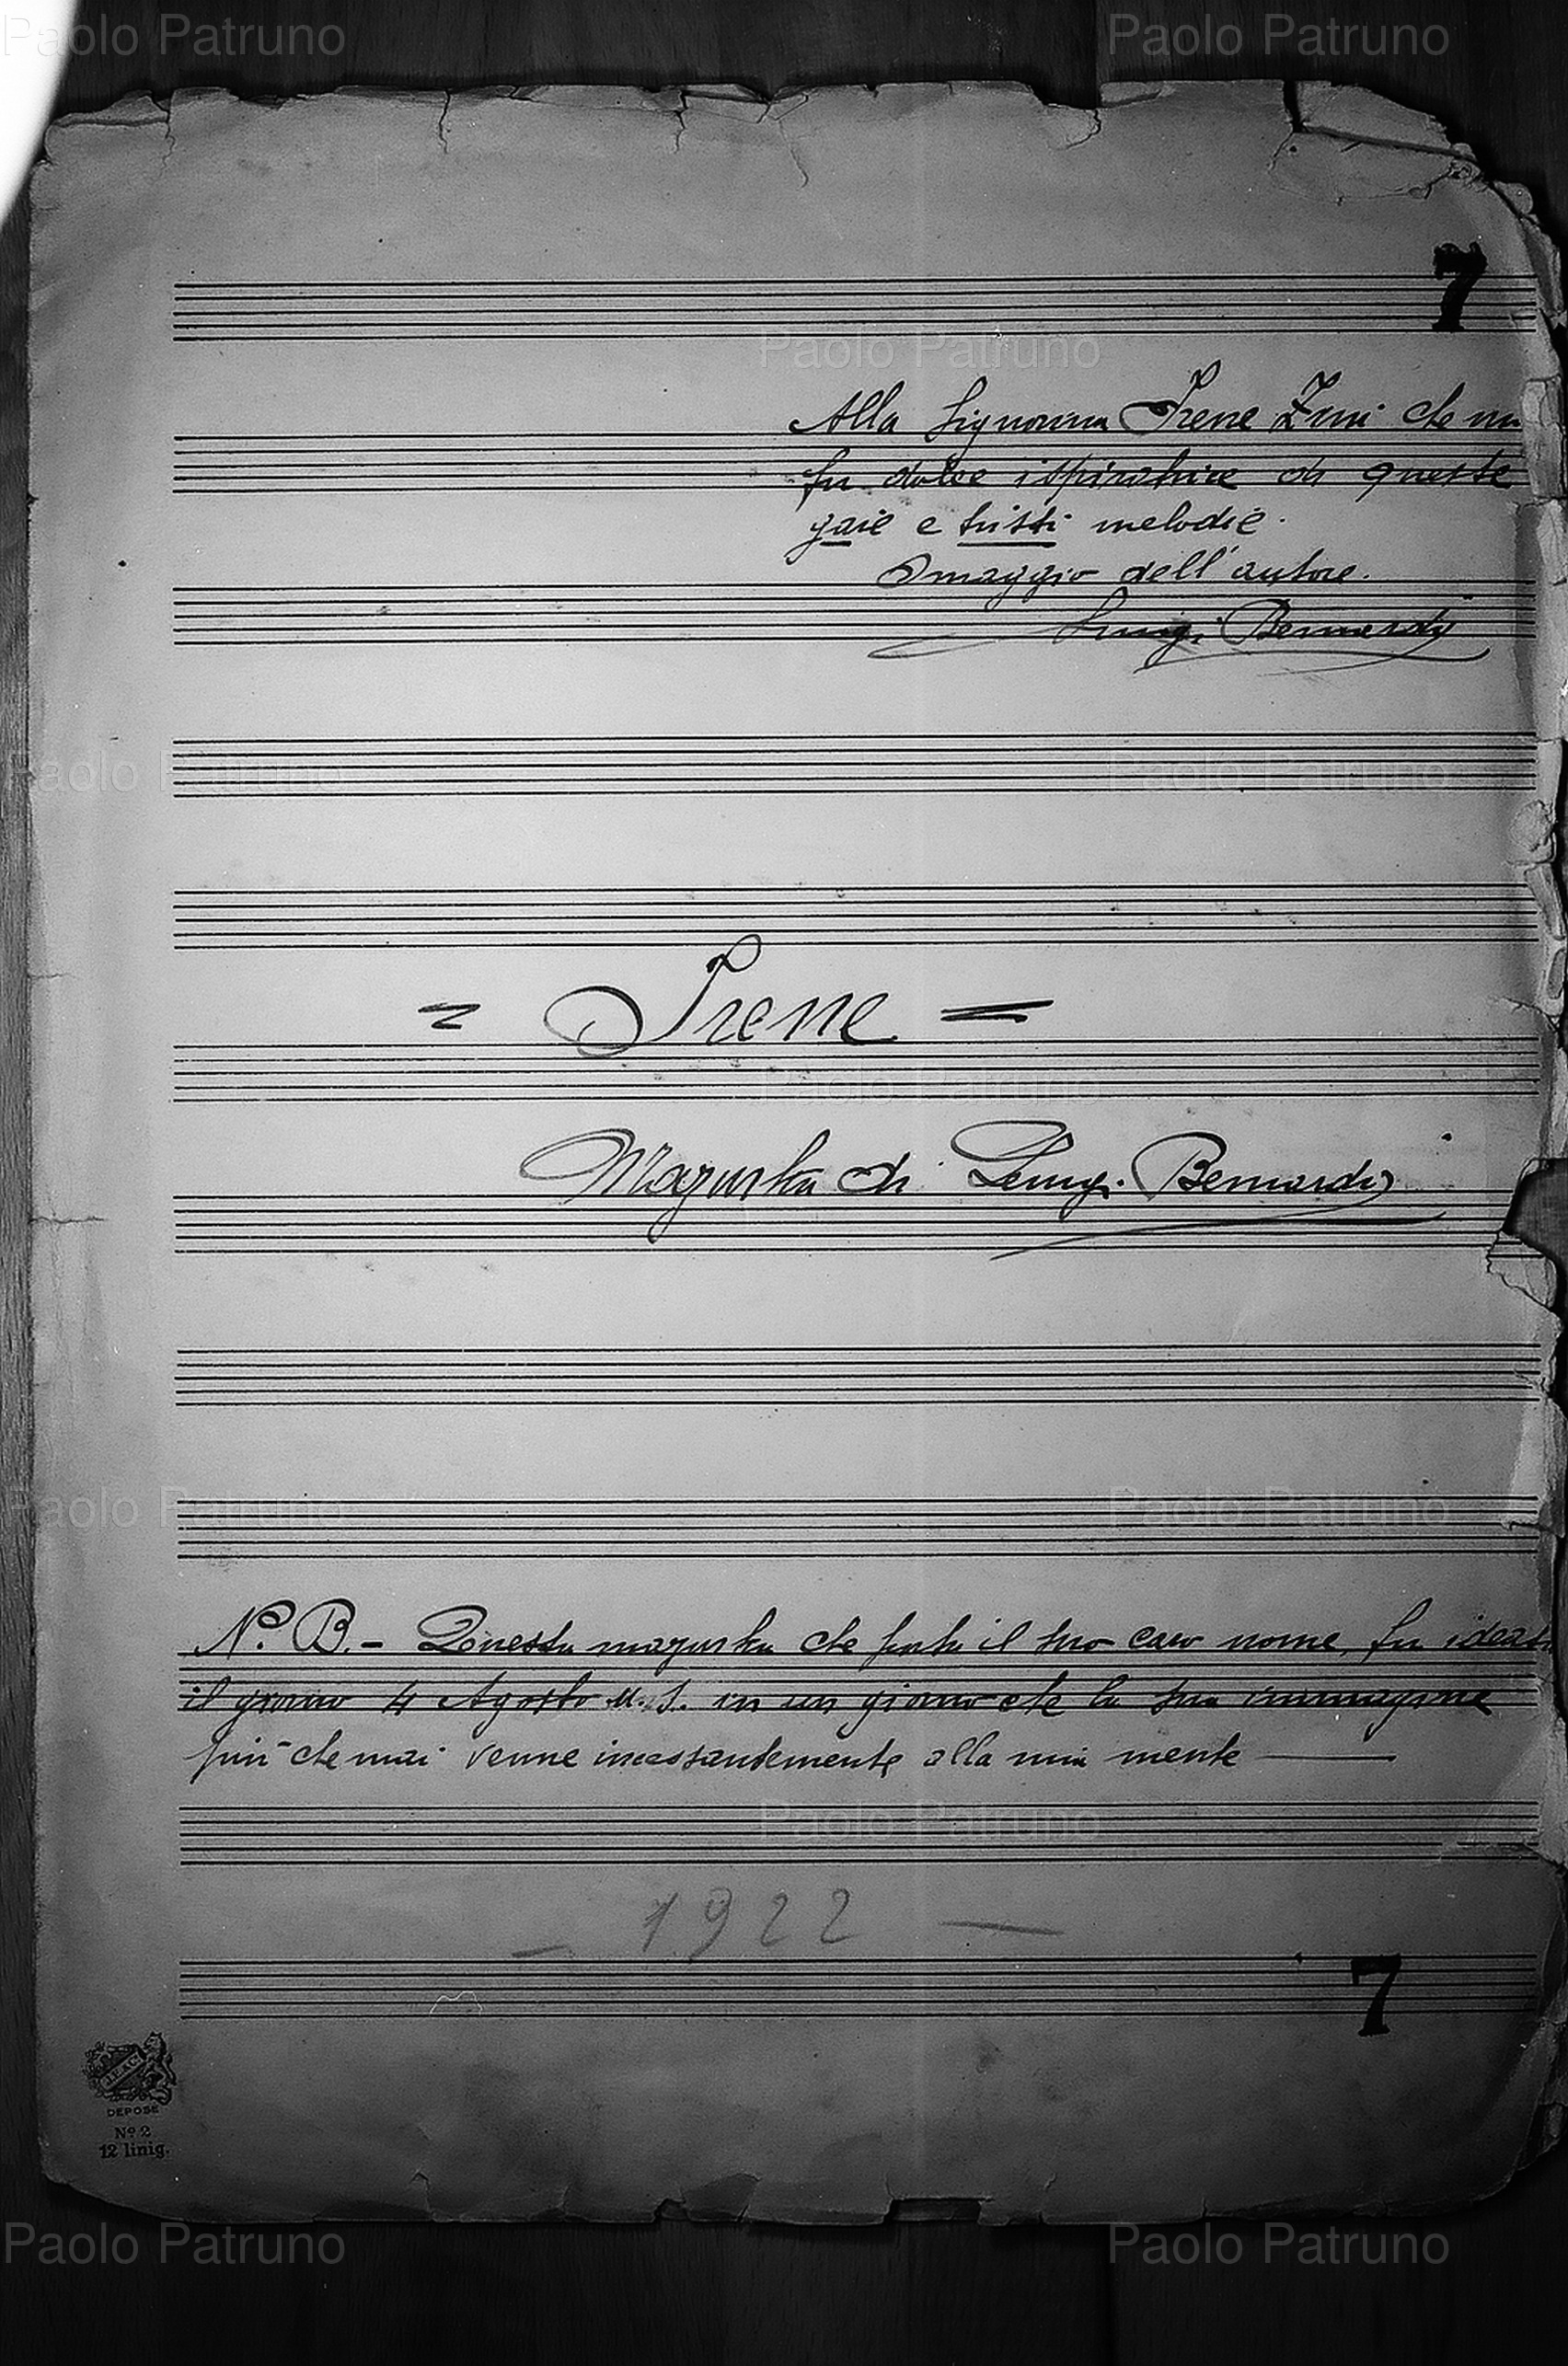 Paolo Patruno Paolo Patruno
7
Paolo Patruno
Alla Signorina Irene Zini che mi
fu dolce ispiratrice di queste
gaie e tristi melodie.
Omaggio dell'autore.
Luigi Bernardi
Paolo Patruno Paolo Patruno
= Irene =
Paolo Patruno
Mazurka di Luigi Bernardi
Paolo Patruno Paolo Patruno
N. B. - Questa mazurka che porta il suo caro nome, fu ideata
il giorno 4 Agosto u. s. in un giorno che la sua immagine
più che mai venne incessantemente alla mia mente —
Paolo Patruno
- 1922 -
7
J.E. & Co.
DEPOSÉ
No 2
12 linig.
Paolo Patruno Paolo Patruno